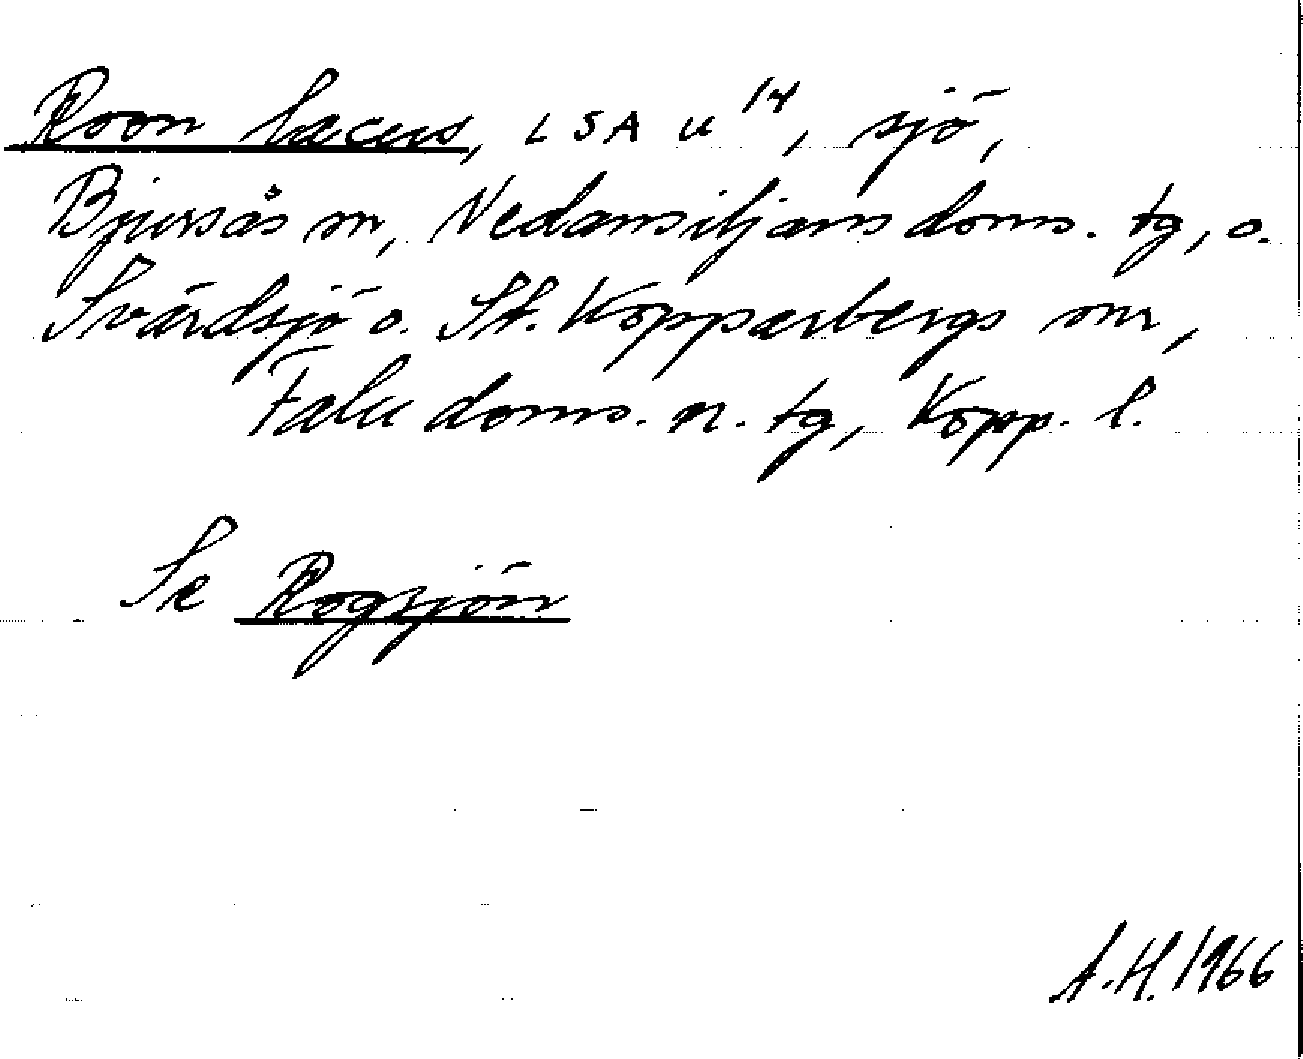 Roon lacus, LSA u 14, sjö,
Bjursås sn, Nedansiljans doms. tg, o.
Svärdsjö o. St. Kopparbergs snr,
Falu doms. n. tg, Kopp. l.
Se Rogsjön
A.H. 1966